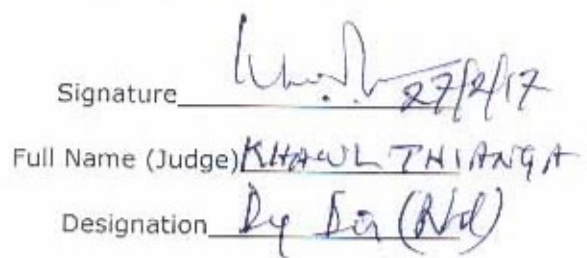 Signature 27/2/17
Full Name (Judge) KHAWL THIANGA
Designation Dy Dir